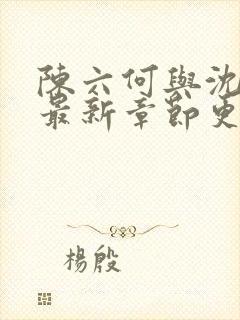 陳六何與沈
最新章節更
楊殷